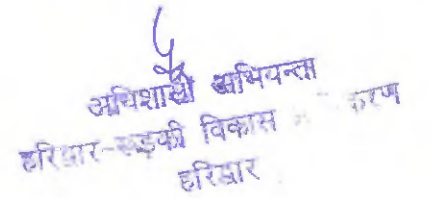 अधिशासी अभियन्ता
हरिद्वार-रूड़की विकास करण
हरिद्वार